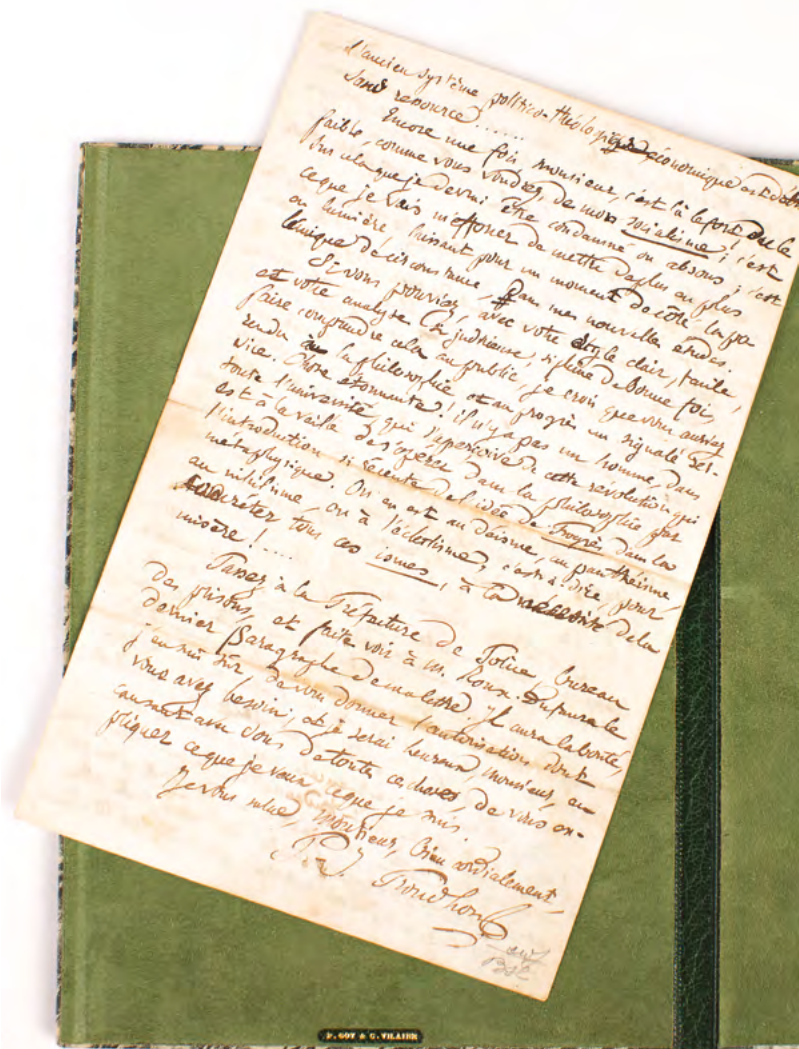 l'ancien système politico-théologique économique est
sans ressource......
Encore une fois, monsieur, c'est là le fort ou le
faible, comme vous voudrez, de mon socialisme ; c'est
sur cela que je devrai être condamné ou absous ; c'est
ce que je vais m'efforcer de mettre de plus en plus
en lumière, laissant pour un moment de côté la po-
lémique de circonstance, dans mes nouvelles études.
Si vous pouviez, avec votre style clair, facile,
et votre analyse si judicieuse, si pleine de bonne foi,
faire comprendre cela au public, je crois que vous auriez
rendu à la philosophie et au progrès un signalé ser-
vice. Chose étonnante ! il n'y a pas un homme, dans
toute l'université, qui s'aperçoive de cette révolution qui
est à la veille de s'opérer dans la philosophie par
l'introduction si récente de l'idée de Progrès dans la
métaphysique. On en est au déisme, au panthéisme,
au nihilisme, ou à l'éclectisme, c'est à dire, pour
tous ces ismes, à la de la
misère !....
Passez à la Préfecture de Police, bureau
des prisons, et faites voir à M. le
dernier paragraphe de ma lettre. Il aura la bonté,
j'en suis sûr de vous donner l'autorisation dont
vous avez besoin ; et je serai heureux, monsieur, en
causant avec vous de toutes ces choses, de vous ex-
pliquer ce que je veux, ce que je suis.
Je vous salue, monsieur, bien cordialement,
P. J. Proudhon
P. GOY & C. VILAINE